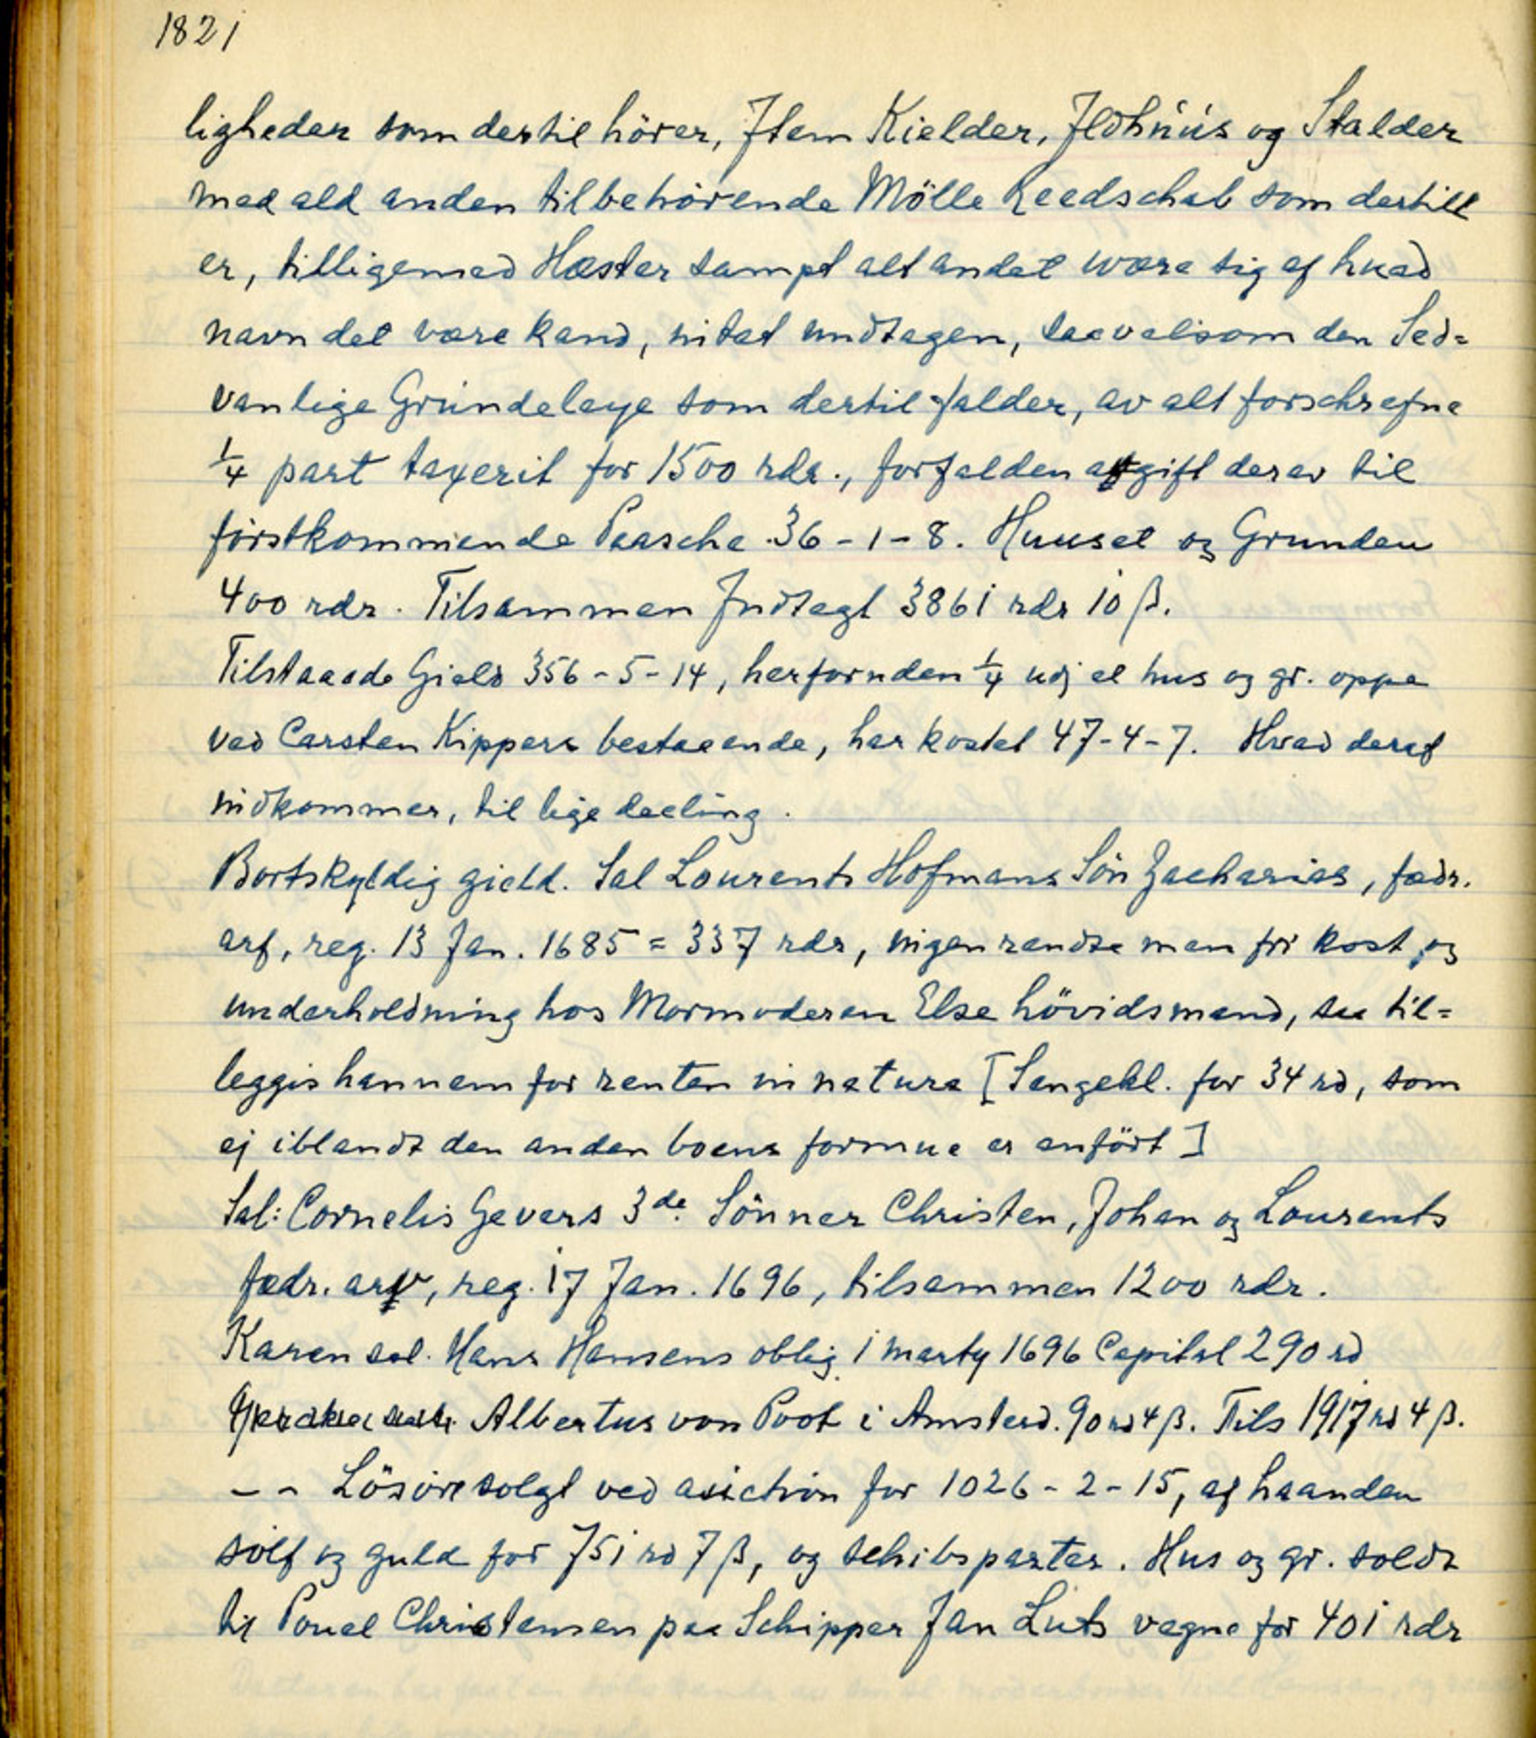 1821
ligheder som dertil hörer, Jtem Kielder, Jldhúús og Stalder
med ald anden tilbehörende Mölle Reedschab som dertill
er, tilligemed Hæster sampt alt andet være sig af huad
navn det være kand, intet undtagen, saavelsom den Sed=
vanlige Grúndeleye som dertil falder, av alt forschrefne
1/4 part taxerit for 1500 rdr., forfalden afgift derav til
förstkommende Paasche 36-1-8. Huuset og Grunden
400 rdr. Tilsammen Jndtagt 3861 rdr 10 β.
Tilstaaede Gield 356-5-14, herforuden 1/4 udj et hus og gr. oppe
ved Carsten Kippers bestaaende, har kostet 47-4-7. Hvad deraf
indkommer, til lige deeling.
Bortskyldig gield. Sal Lourents Hofmans Sön Zacharias, fædr.
arf, reg. 13 Jan. 1685 = 337 rdr, ingen rendte men fri kost og
underholdning hos Mormoderen Else hövidsmand, saa til=
leggis hannem for renten in natura [Sengekl. for 34 rd, som
ej iblandt den anden boens formue er anfört]
Sal: Cornelis Gevers 3de. Sönner Christen, Johan og Lourents
fædr. arv, reg. 17 Jan. 1696, tilsammen 1200 rdr.
Karen sal. Hans Hansens oblig. 1 marty 1696 Capital 290 rd
Albertus von Poot i Amsterd. 90 rd 4 β. Tils 1917 rd 4 β.
- - Lösöre solgt ved auction for 1026-2-15, af haanden
sölf og guld for 751 rd 7 β, og schibsparter. Hus og gr. soldt
til Pouel Christensen paa Schipper Jan Luts vegne for 401 rdr